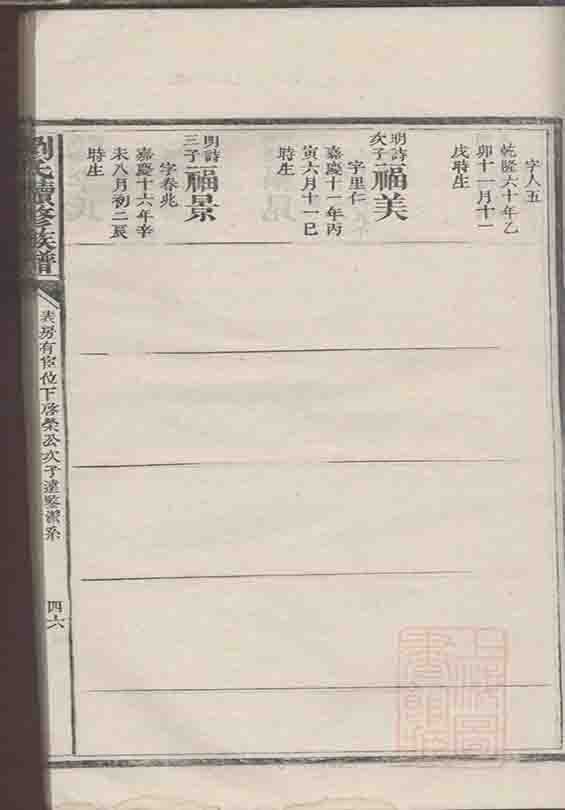 字人五
乾隆六十年乙
卯十一月十一
戌時生
明詩次子福美
字里仁
嘉慶十一年丙
寅六月十一巳
時生
明詩三子福景
字春兆
嘉慶十六年辛
未八月初二辰
時生
劉氏續修族譜
表房有官位下啓榮公次子達鑒潔系
四六
上海圖書館藏